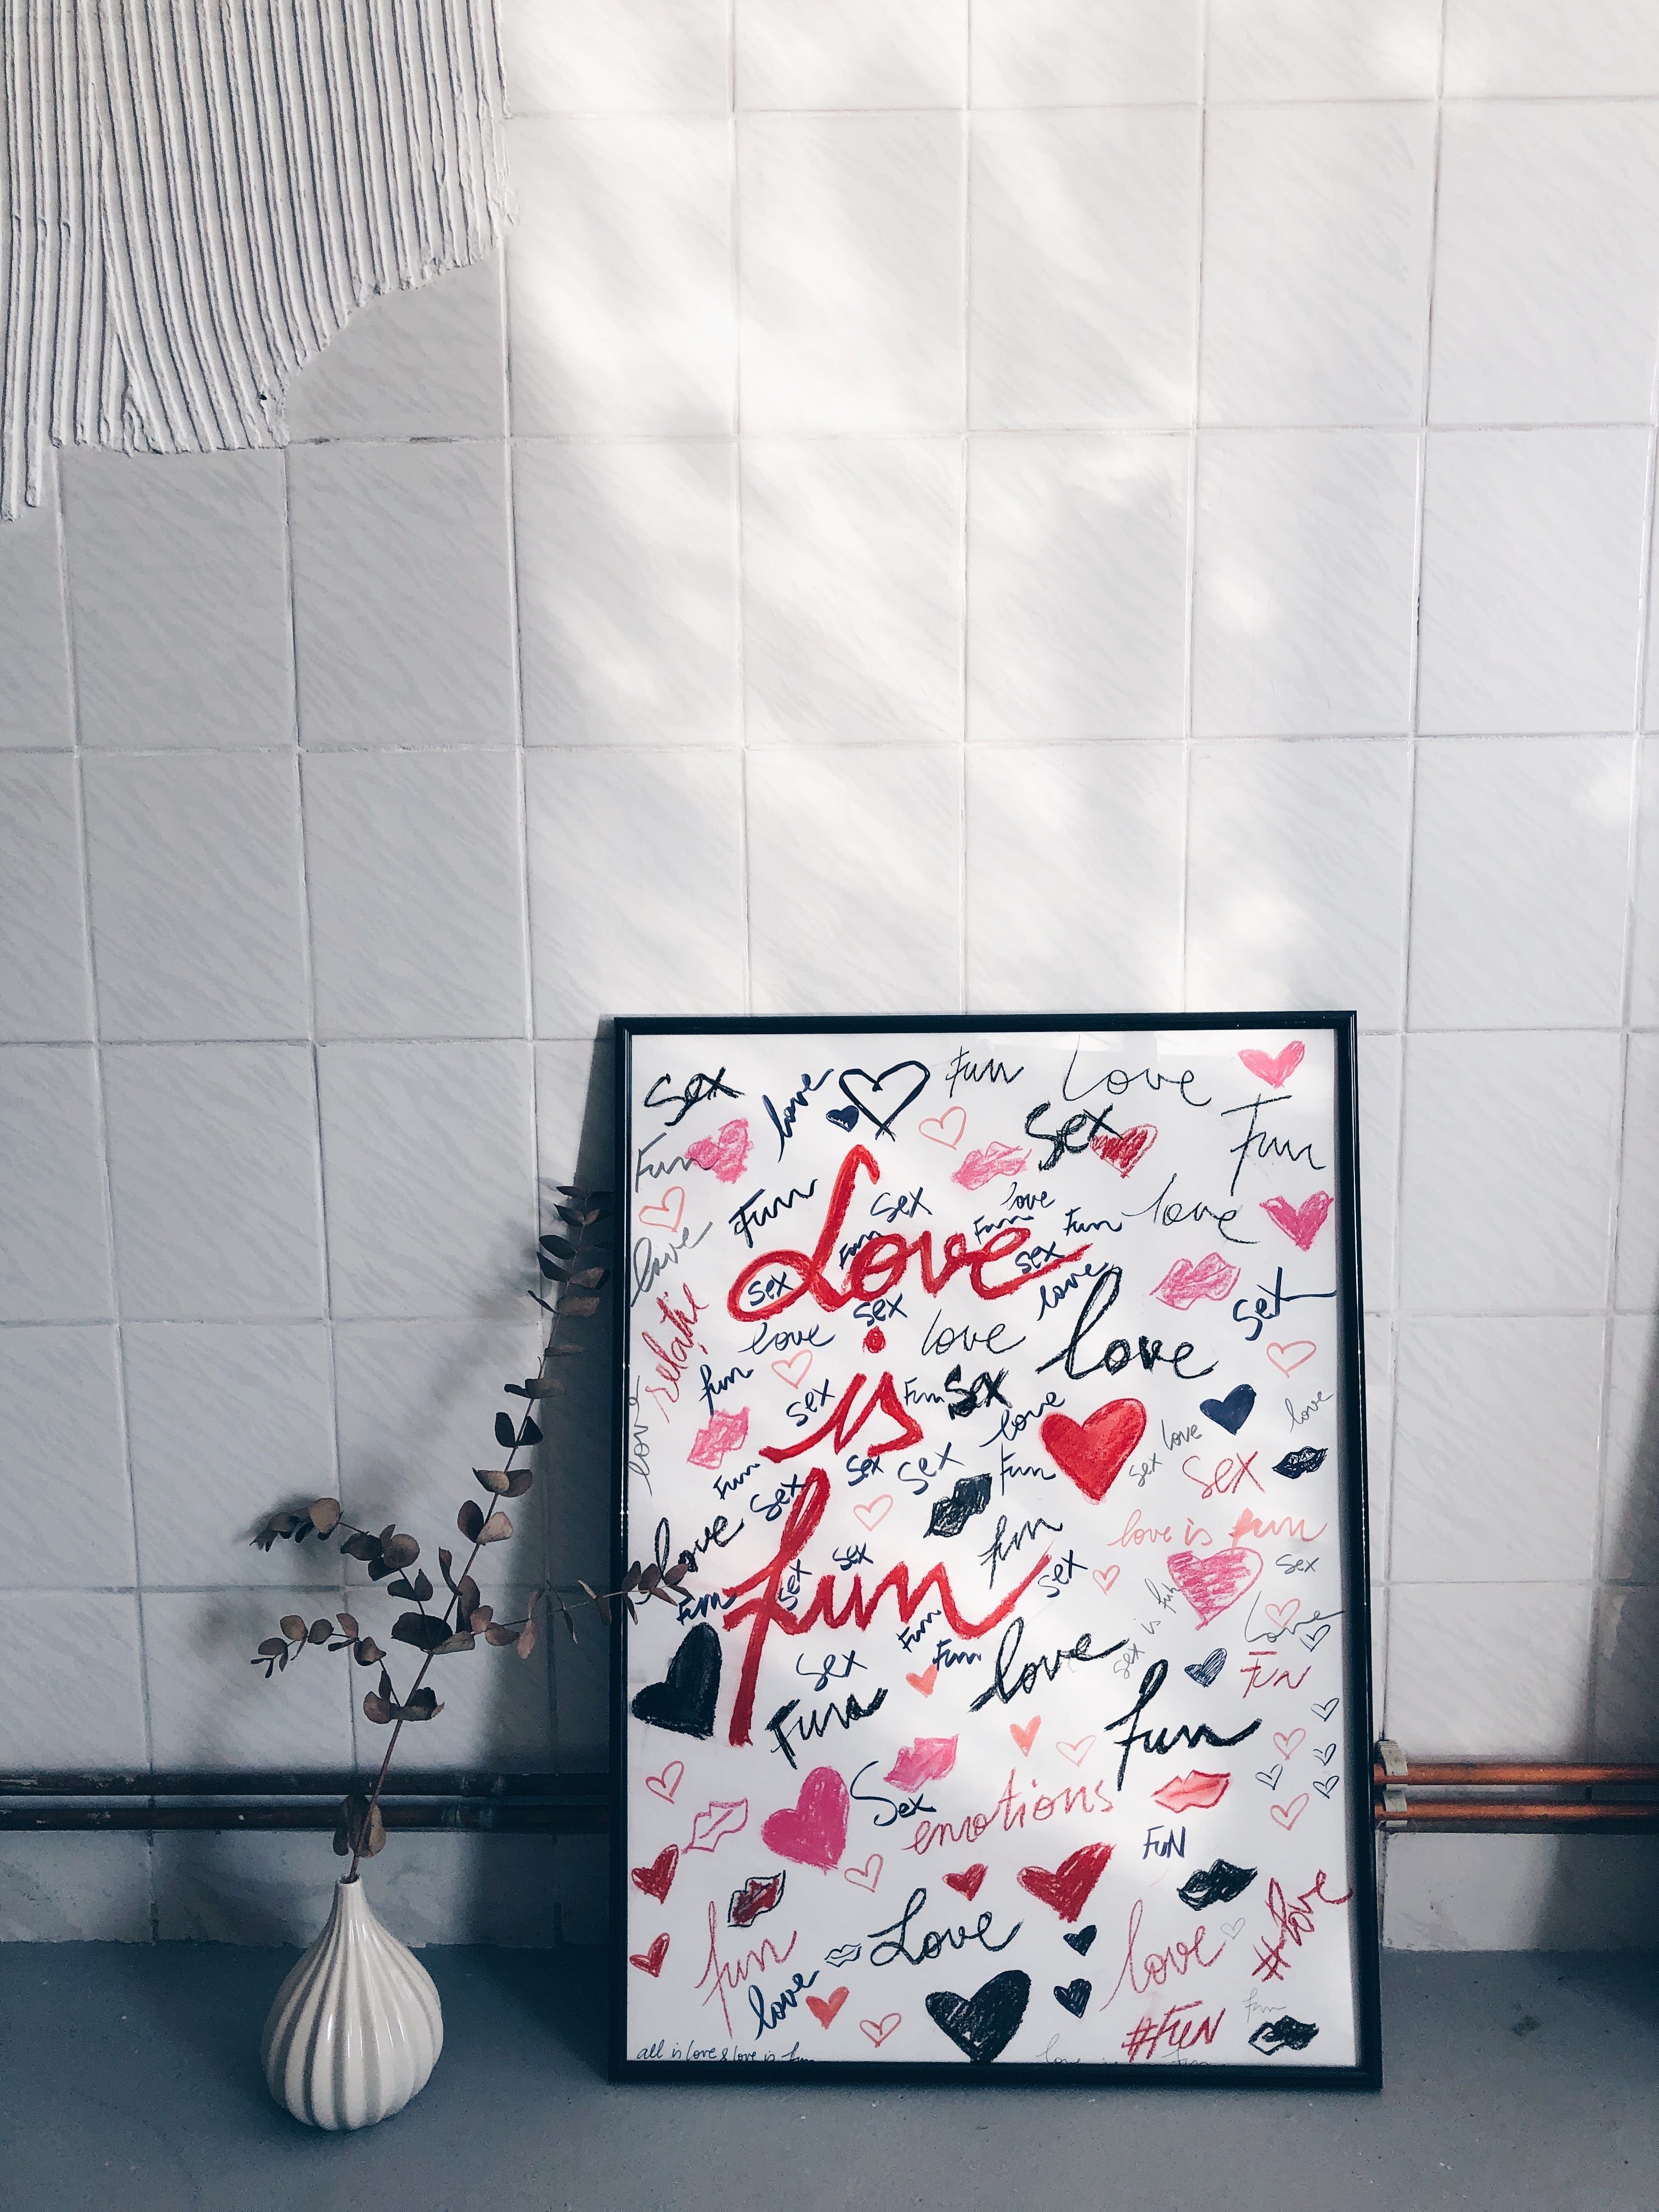 Sex
love
Fun
Love
Fun
Sex
Fun
Fun
Sex
love
love
Fun
Fun
Fun
love
Love
Sex
Sex
love
Sex
Sex
relație
love
love
love
fun
Sex
is
Fun
Sex
love
love
love
love
Sex
Sex
Fun
Sex
Sex
Fun
Sex
love
fun
love is fun
Sex
Sex
Sex
Sex
fun
Fun
sex is fun
Love
Fun
Fun
love
Sex
FUN
Fun
fun
Sex
emotions
FUN
#love
fun
Love
love
love
#FUN
Fun
all is love & love is fun